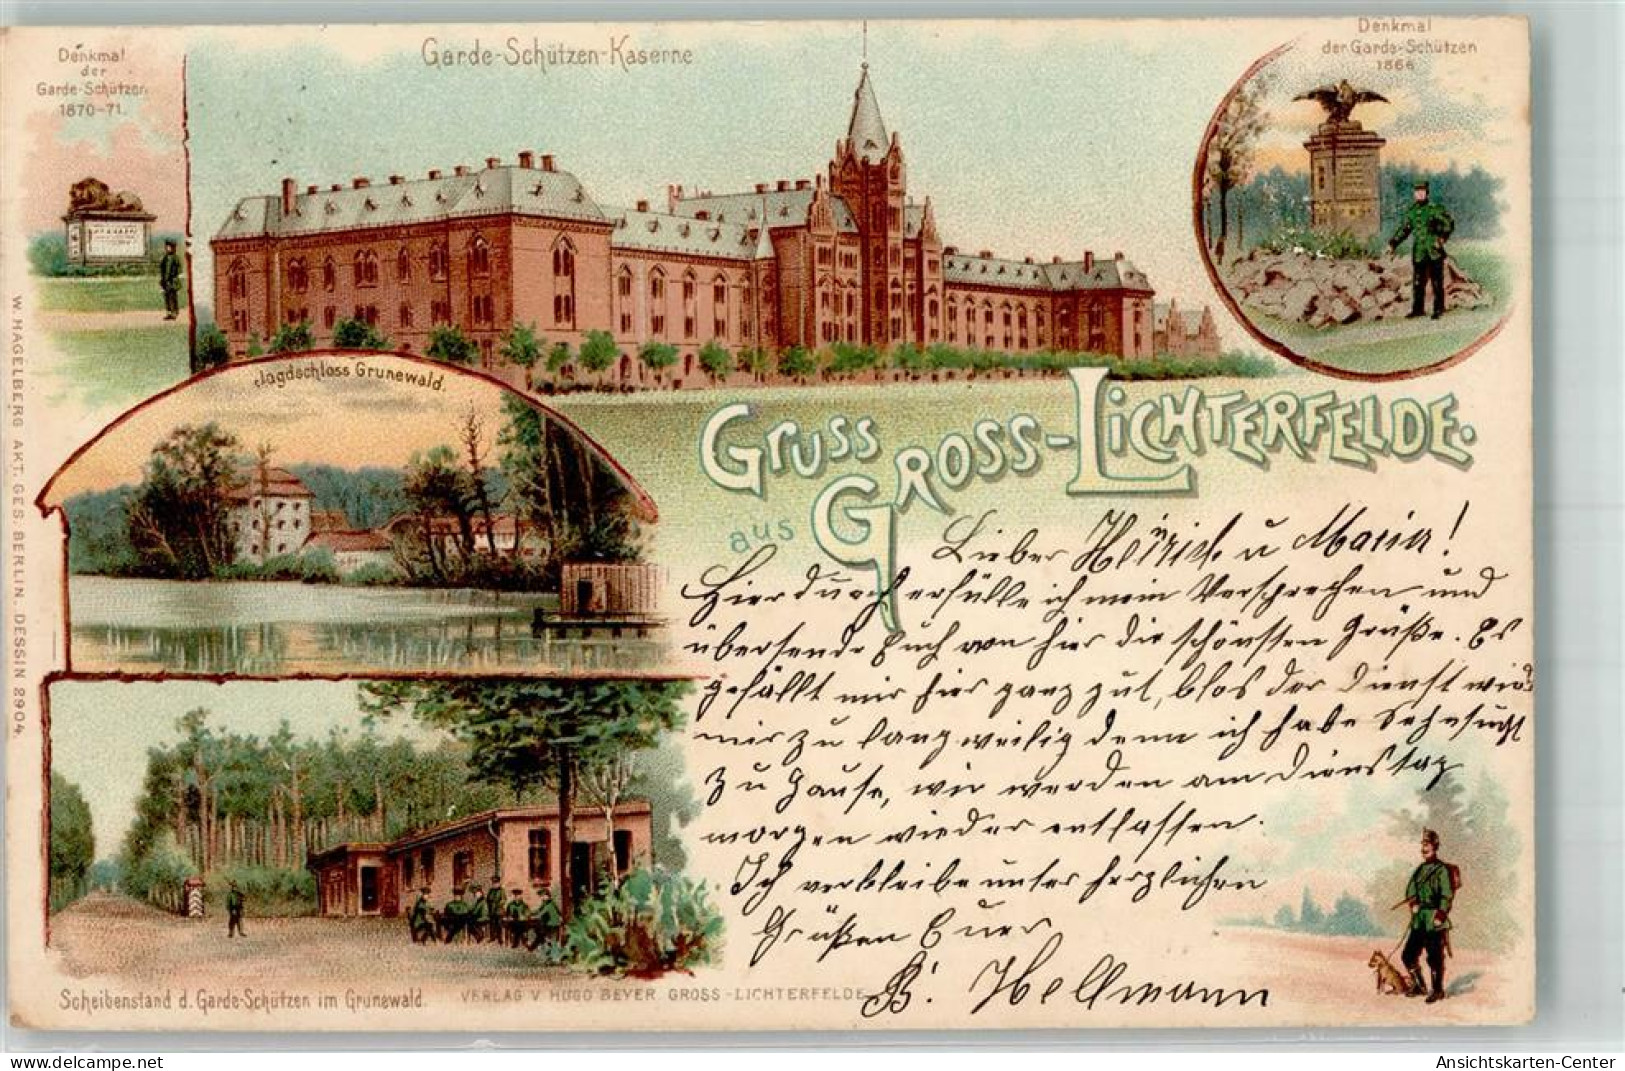 Denkmal
der
Garde-Schützen
1870-71.
Garde-Schützen-Kaserne
Denkmal
der Garde-Schützen
1866
Jagdschloss Grunewald.
W. HAGELBERG AKT. GES. BERLIN. DESSIN 2904.
GRUSS
aus GROSS-LICHTERFELDE.
Lieber Heinrich u Maria!
Hierdurch erfülle ich mein Versprechen und
übersende Euch von hier die schönsten Grüße. Es
gefällt mir hier ganz gut, blos der Dienst wird
mir zu langweilig denn ich habe Sehnsucht
zu Hause, wir werden am Dienstag
morgen wieder entlassen.
Ich verbleibe unter herzlichen
Grüßen Euer
B. Hellmann
Scheibenstand d. Garde-Schützen im Grunewald.
VERLAG V HUGO BEYER GROSS-LICHTERFELDE
Ansichtskarten-Center
https://www.ansichtskarten-center.de/